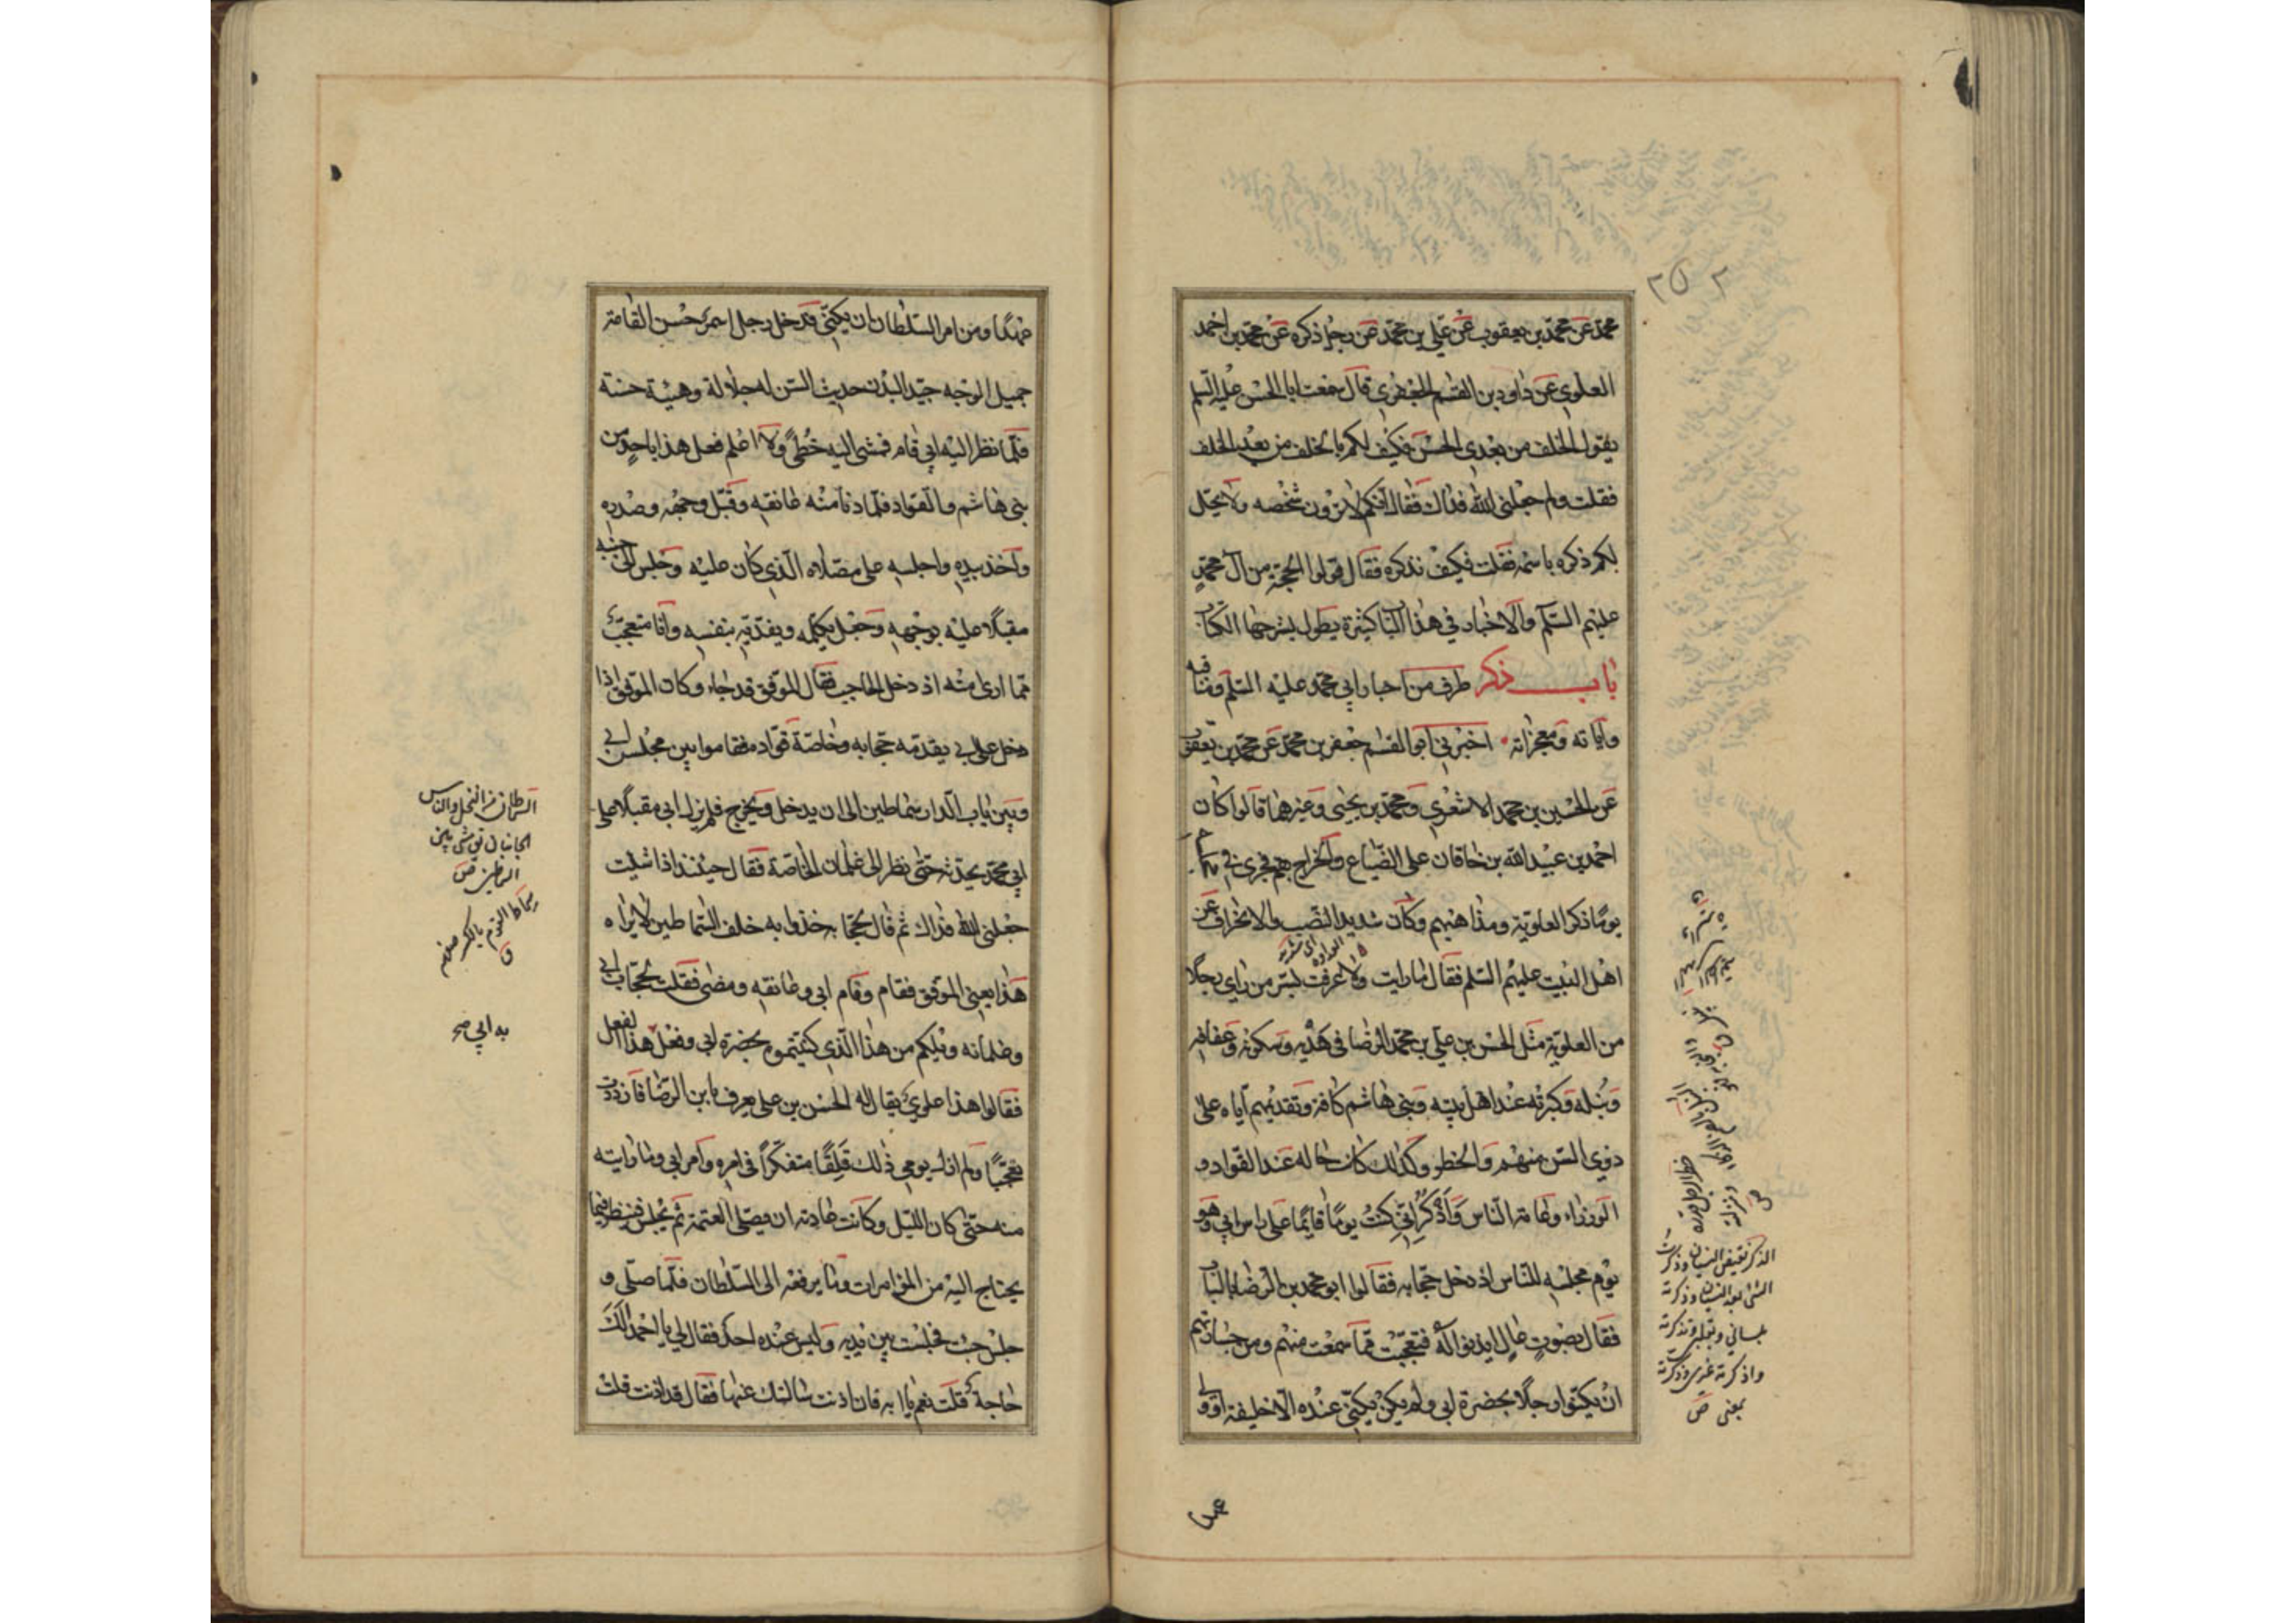 ٢٥٢
محمد عن محمد بن يعقوب عن علي بن محمد عن رجل ذكره عن محمد بن احمد
العلوي عن داود بن القسم الجعفري قال سمعت ابا الحسن عليه السلم
يقول الخلف من بعدى الحسن فكيف لكم بالخلف من بعد الخلف
فقلت ولم جعلنى الله فداك فقال انكم لا ترون شخصه ولا يحل
لكم ذكره باسمه فقلت فكيف نذكره فقال قولوا الحجة من آل محمد
عليهم السلم والاخبار في هذا الباب كثيرة يطول بشرحها الكتاب
باب ذكر طرف من اخبار ابي محمد عليه السلم ومناقبه
وآياته ومعجزاته اخبرني ابو القسم جعفر بن محمد عن محمد بن يعقوب
عن الحسين بن محمد الاشعري ومحمد بن يحيى وغيرهما قالوا كان
احمد بن عبيد الله بن خاقان على الضياع والخراج بقم فجرى في
يوما ذكر العلوية ومذاهبهم وكان شديد النصب والانحراف عن
اهل البيت عليهم السلم فقال ما رايت ولا عرفت بسر من راى رجلا
من العلوية مثل الحسن بن علي بن محمد الرضا في هديه وسكونه وعفافه
ونبله وكبرته عند اهل بيته وبنى هاشم كافة وتقديمهم اياه على
ذوي السن منهم والخطر وكذلك كان حاله عند القواد و
الوزراء وعامة الناس واذكر انى كنت يوما قايما على راس ابي وهو
يوم مجلسه للناس اذ دخل حجابه فقالوا ابو محمد بن الرضا بالباب
فقال بصوت عال ايذنوا له فتعجبت مما سمعت منهم ومن جسارتهم
ان يكنوا رجلا بحضرة ابى ولم يكن يكنى عنده الا خليفة او ولى
الذكر نقيض النسيان وذكرت
الشئ بعد النسيان وذكرته
بلسانى وبقلبى وتذكرته
واذكرته غيرى وذكرته
بمعنى ص
عهد او من امر السلطان ان يكنى فدخل رجل اسمر حسن القامة
جميل الوجه جيد البدن حديث السن له جلالة وهيئة حسنة
فلما نظر اليه ابي قام فمشى اليه خطى ولا اعلم فعل هذا باحد من
بنى هاشم والقواد فلما دنا منه عانقه وقبل وجهه وصدره
واخذ بيده واجلسه على مصلاه الذي كان عليه وجلس الى جنبه
مقبلا عليه بوجهه وجعل يكلمه ويفديه بنفسه وانا متعجب
مما ارى منه اذ دخل الحاجب فقال الموفق قد جاء وكان الموفق اذا
دخل على ابي يقدمه حجابه وخاصة قواده فقاموا بين مجلس ابي
وبين باب الدار سماطين الى ان يدخل ويخرج فلم يزل ابى مقبلا على
ابي محمد يحدثه حتى نظر الى غلمان الخاصة فقال حينئذ اذا شئت
جعلنى الله فداك ثم قال لحجابه خذوا به خلف السماطين لا يراه
هذا يعنى الموفق فقام وقام ابى وعانقه ومضى فقلت لحجاب ابي
وغلمانه ويلكم من هذا الذي كنيتموه بحضرة ابى وفعل هذا الفعل
فقالوا هذا علوي يقال له الحسن بن علي يعرف بابن الرضا فازددت
تعجبا ولم ازل يومي ذلك قلقا متفكرا في امره وامر ابي وما رايته
منه حتى كان الليل وكانت عادته ان يصلى العتمة ثم يجلس فينظر فيما
يحتاج اليه من المؤامرات وما يرفعه الى السلطان فلما صلى و
جلس جئت فجلست بين يديه وليس عنده احد فقال لي يا احمد الك
حاجة قلت نعم يا ابه فان اذنت سالتك عنها فقال قد اذنت قلت
السماطان من النخل والناس
الجانبان يق مشى بين
السماطين ص
سماط القوم بالكسر صفهم
ق
به ابي صح